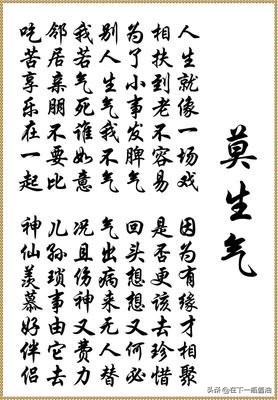 莫生气
人生就像一场戏
因为有缘才相聚
相扶到老不容易
是否更该去珍惜
为了小事发脾气
回头想想又何必
别人生气我不气
气出病来无人替
我若气死谁如意
况且伤神又费力
邻居亲朋不要比
儿孙琐事由它去
吃苦享乐在一起
神仙羡慕好伴侣
头条 @在下一瓶酱油